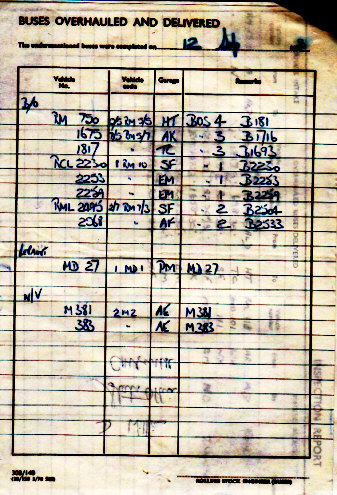 BUSES OVERHAULED AND DELIVERED
The undermentioned buses were completed on 12
Vehicle No. Vehicle code Garage Remarks
B/O
RM 750 HT BOS 4 B181
1675 AK " 3 B1716
1817 " TC " 3 B1693
RCL 2230 1 RM 10 SF B2250
2253 " EM " 1 B2263
2259 " EM " 1
RML 2/7 RM 7/3 SF " 2 B2504
2568 " AF " 2 B2533
MD 27 1 MD1 PM MD 27
N/V
M381 2M2 AE M381
383 " AE M383
INSPECTION REPORT
ROLLING STOCK ENGINEER